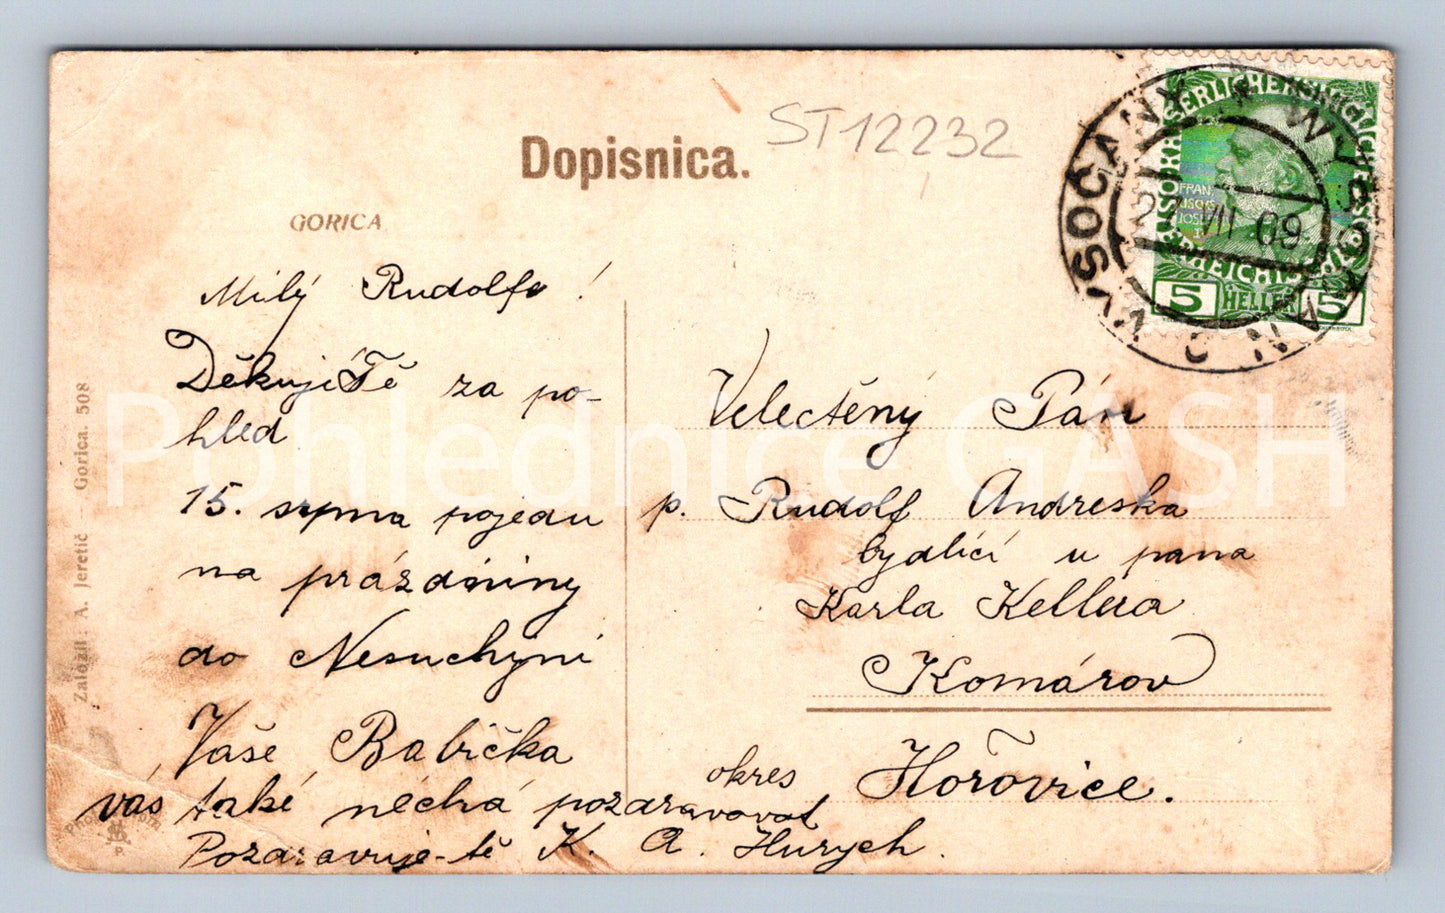 Dopisnica.
ST12232
GORICA
Milý Rudolfe!
Děkuji Tě za po-
hled
15. srpna pojedu
na prázdniny
do Nesuchyni
Vaše Babička
vás také nechá pozdravovat
Pozdravuje-tě K. A. Hurych.
Velectěný Pán
p. Rudolf Andreska
bydlící u pana
Karla
Komárov
okres Hořovice.
VYSOČANY
WYSOČAN
2 VII 09
KAISERLICHE KÖNIGLICHE ÖSTERREICHISCHE POST
FRANZ
JOSEF
5 HELLER 5
Založil: A. Jeretič - Gorica. 508
Pohlednice GASH